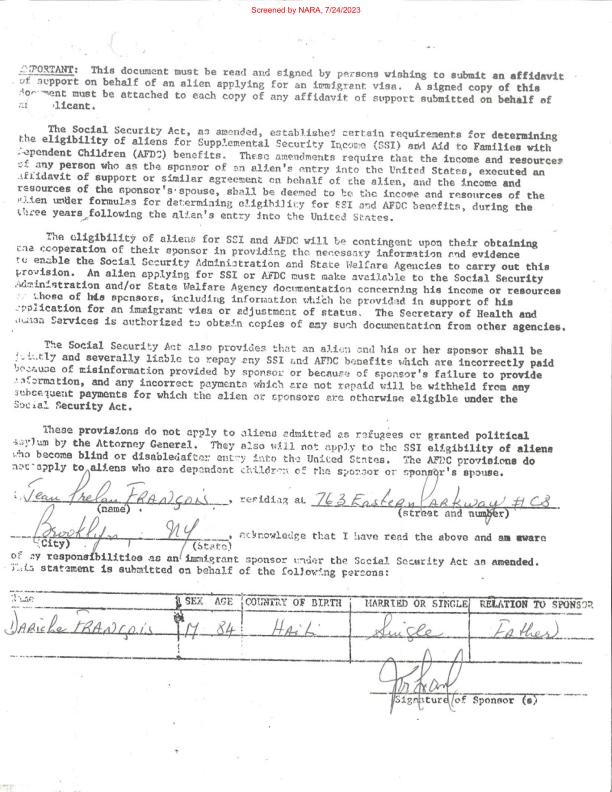 Screened by NARA, 7/24/2023
IMPORTANT: This document must be read and signed by persons wishing to submit an affidavit
of support on behalf of an alien applying for an immigrant visa. A signed copy of this
document must be attached to each copy of any affidavit of support submitted on behalf of
an applicant.
The Social Security Act, as amended, established certain requirements for determining
the eligibility of aliens for Supplemental Security Income (SSI) and Aid to Families with
Dependent Children (AFDC) benefits. These amendments require that the income and resources
of any person who as the sponsor of an alien's entry into the United States, executed an
affidavit of support or similar agreement on behalf of the alien, and the income and
resources of the sponsor's spouse, shall be deemed to be the income and resources of the
alien under formulas for determining eligibility for SSI and AFDC benefits, during the
three years following the alien's entry into the United States.
The eligibility of aliens for SSI and AFDC will be contingent upon their obtaining
the cooperation of their sponsor in providing the necessary information and evidence
to enable the Social Security Administration and State Welfare Agencies to carry out this
provision. An alien applying for SSI or AFDC must make available to the Social Security
Administration and/or State Welfare Agency documentation concerning his income or resources
or those of his sponsors, including information which he provided in support of his
application for an immigrant visa or adjustment of status. The Secretary of Health and
Human Services is authorized to obtain copies of any such documentation from other agencies.
The Social Security Act also provides that an alien and his or her sponsor shall be
jointly and severally liable to repay any SSI and AFDC benefits which are incorrectly paid
because of misinformation provided by sponsor or because of sponsor's failure to provide
information, and any incorrect payments which are not repaid will be withheld from any
subsequent payments for which the alien or sponsors are otherwise eligible under the
Social Security Act.
These provisions do not apply to aliens admitted as refugees or granted political
asylum by the Attorney General. They also will not apply to the SSI eligibility of aliens
who become blind or disabledafter entry into the United States. The AFDC provisions do
not apply to aliens who are dependent children of the sponsor or sponsor's spouse.
I, Jean Prelan FRANÇOIS, residing at 763 Eastern Parkway # C8
(name) (street and number)
Brooklyn NY, acknowledge that I have read the above and am aware
(City) (State)
of my responsibilities as an immigrant sponsor under the Social Security Act as amended.
This statement is submitted on behalf of the following persons:
Name SEX AGE COUNTRY OF BIRTH MARRIED OR SINGLE RELATION TO SPONSOR
DARICHE FRANÇOIS M 84 Haiti Single Father
Signature of Sponsor (s)